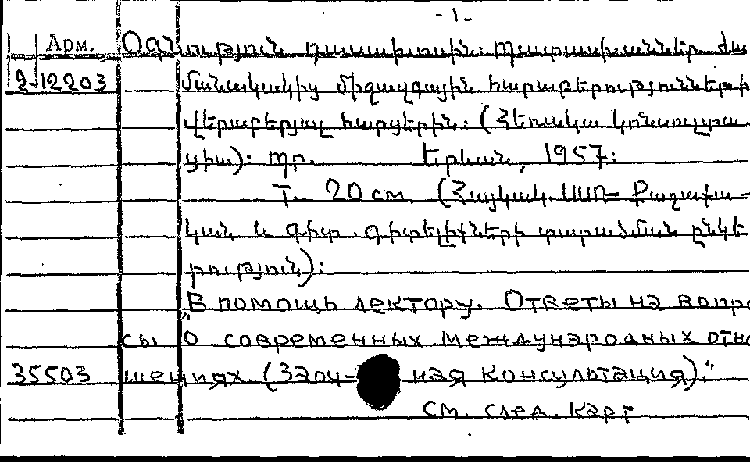 -1-
Арм. Օգնություն դասախոսին. Պատասխաններ ժա
2-12203 մանակակից միջազգային հարաբերությունների
վերաբերյալ հարցերին: (Հեռակա կոնսուլտա
ցիա): տր. Երևան, 1957:
Т. 20 см. (Հայկակ. ՍՍՌ Քաղաքա-
կան և գիտ. գիտելիքների տարածման ընկե
րություն):
"В помощь лектору. Ответы на вопро
сы о современных международных отно
35503 шениях (Заоч- ная консультация)."
см. след. карт